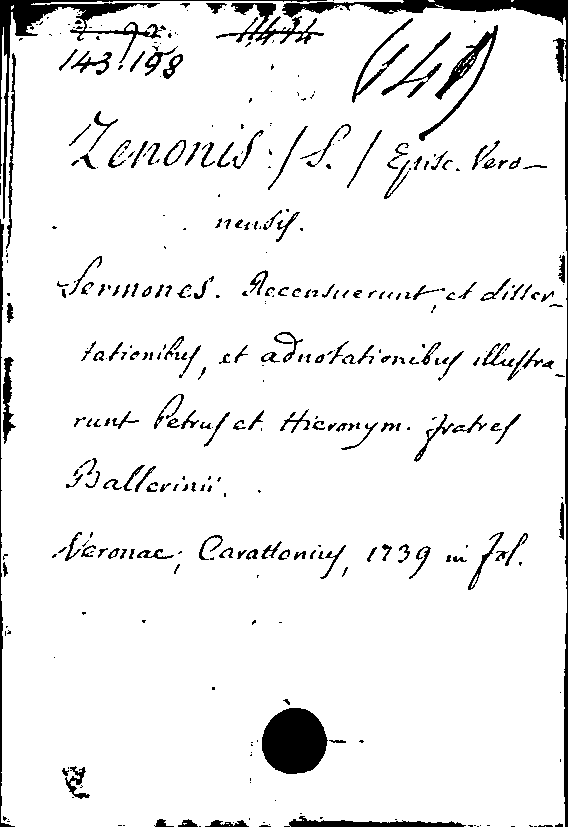 143.198 (141)
Zenonis /S./ Episc. Vero-
nensis.
Sermones. Recensuerunt, et disser-
tationibus, et adnotationibus illustra-
runt Petrus et Hieronym. fratres
Ballerinii.
Veronae, Carattonius, 1739 in fol.